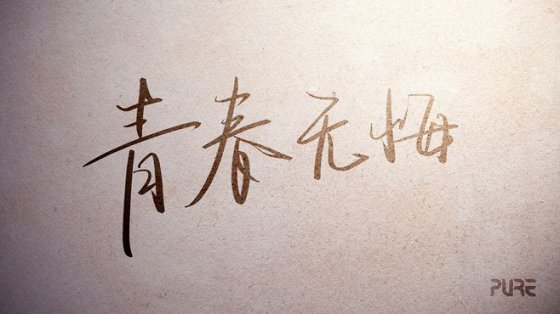 青春无悔
PURE